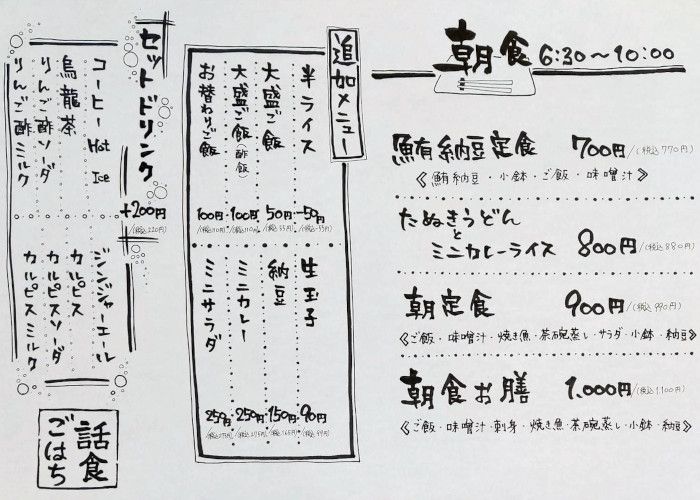 朝食 6:30〜10:00
鮪納豆定食 700円/(税込770円)
《鮪納豆・小鉢・ご飯・味噌汁》
たぬきうどん
と
ミニカレーライス 800円/(税込880円)
朝定食 900円/(税込990円)
《ご飯・味噌汁・焼き魚・茶碗蒸し・サラダ・小鉢・納豆》
朝食お膳 1.000円/(税込1,100円)
《ご飯・味噌汁・刺身・焼き魚・茶碗蒸し・小鉢・納豆》
追加メニュー
半ライス -50円/(税込-55円)
大盛ご飯 50円/(税込55円)
大盛ご飯(酢飯) 100円/(税込110円)
お替わりご飯 100円/(税込110円)
生玉子 90円/(税込99円)
納豆 150円/(税込165円)
ミニカレー 250円/(税込275円)
ミニサラダ 250円/(税込275円)
セットドリンク +200円
(税込220円)
コーヒー Hot Ice
烏龍茶
りんご酢ソーダ
りんご酢ミルク
ジンジャーエール
カルピス
カルピスソーダ
カルピスミルク
話食
ごはち